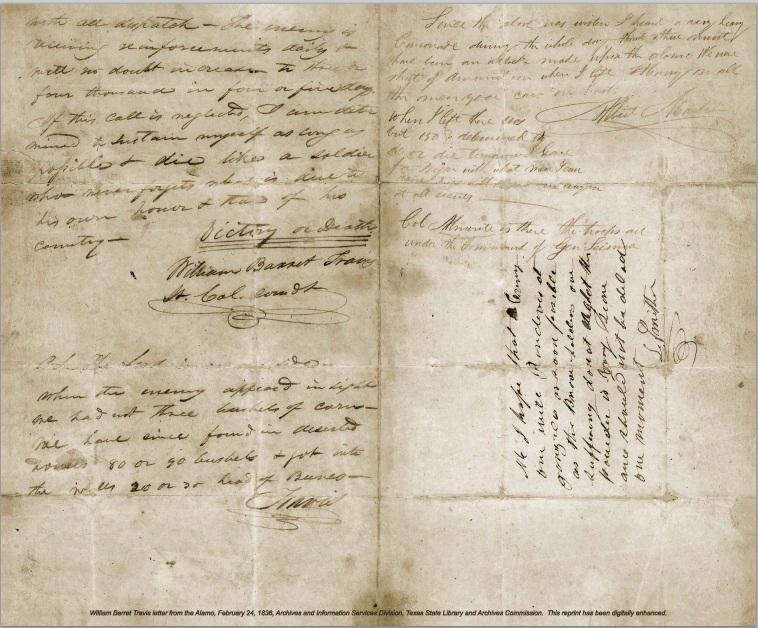 with all dispatch — The enemy is
receiving reinforcements daily &
will no doubt increase to three or
four thousand in four or five days.
If this call is neglected, I am deter
mined to sustain myself as long as
possible & die like a soldier
who never forgets what is due to
his own honor & that of his
country —
Victory or Death
William Barret Travis
Lt. Col. comdt
P.S. The Lord is on our side —
When the enemy appeared in sight
we had not three bushels of corn —
we have since found in deserted
houses 80 or 90 bushels & got into
the walls 20 or 30 head of Beeves —
Travis
Since the above was written I heard a very heavy
Canonade during the whole day think there must
have been an attack made upon the alamo We were
short of Ammunition when I left Hurry on all
the men you can
Albert Martin
When I left there was
but 150 determined to
do or die tomorrow I leave
for Bejar with what men I can
at all events
Col Almonte is there the troops are
under the Command of Gen Seisma
Nb I hope that Every
one will Rendevu at
gonzales as soon poseble
as the Brave Soldiers are
suffering do not neglect the
powder is very scarce
and should not be delad
one moment
L. Smither
William Barret Travis letter from the Alamo, February 24, 1836, Archives and Information Services Division, Texas State Library and Archives Commission. This reprint has been digitally enhanced.